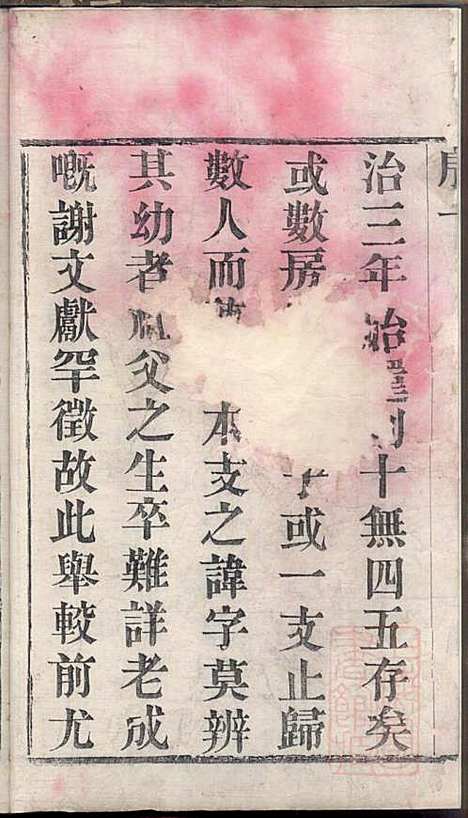 治三年始
十無四五存矣
或數房
或一支止歸
數人而
本支之諱字莫辨
其幼者
父之生卒難詳老成
嘅謝文獻罕徵故此舉較前尤